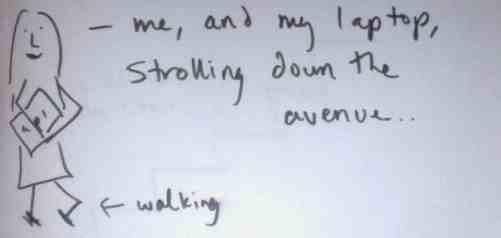 — me, and my laptop,
strolling down the
avenue..
← walking